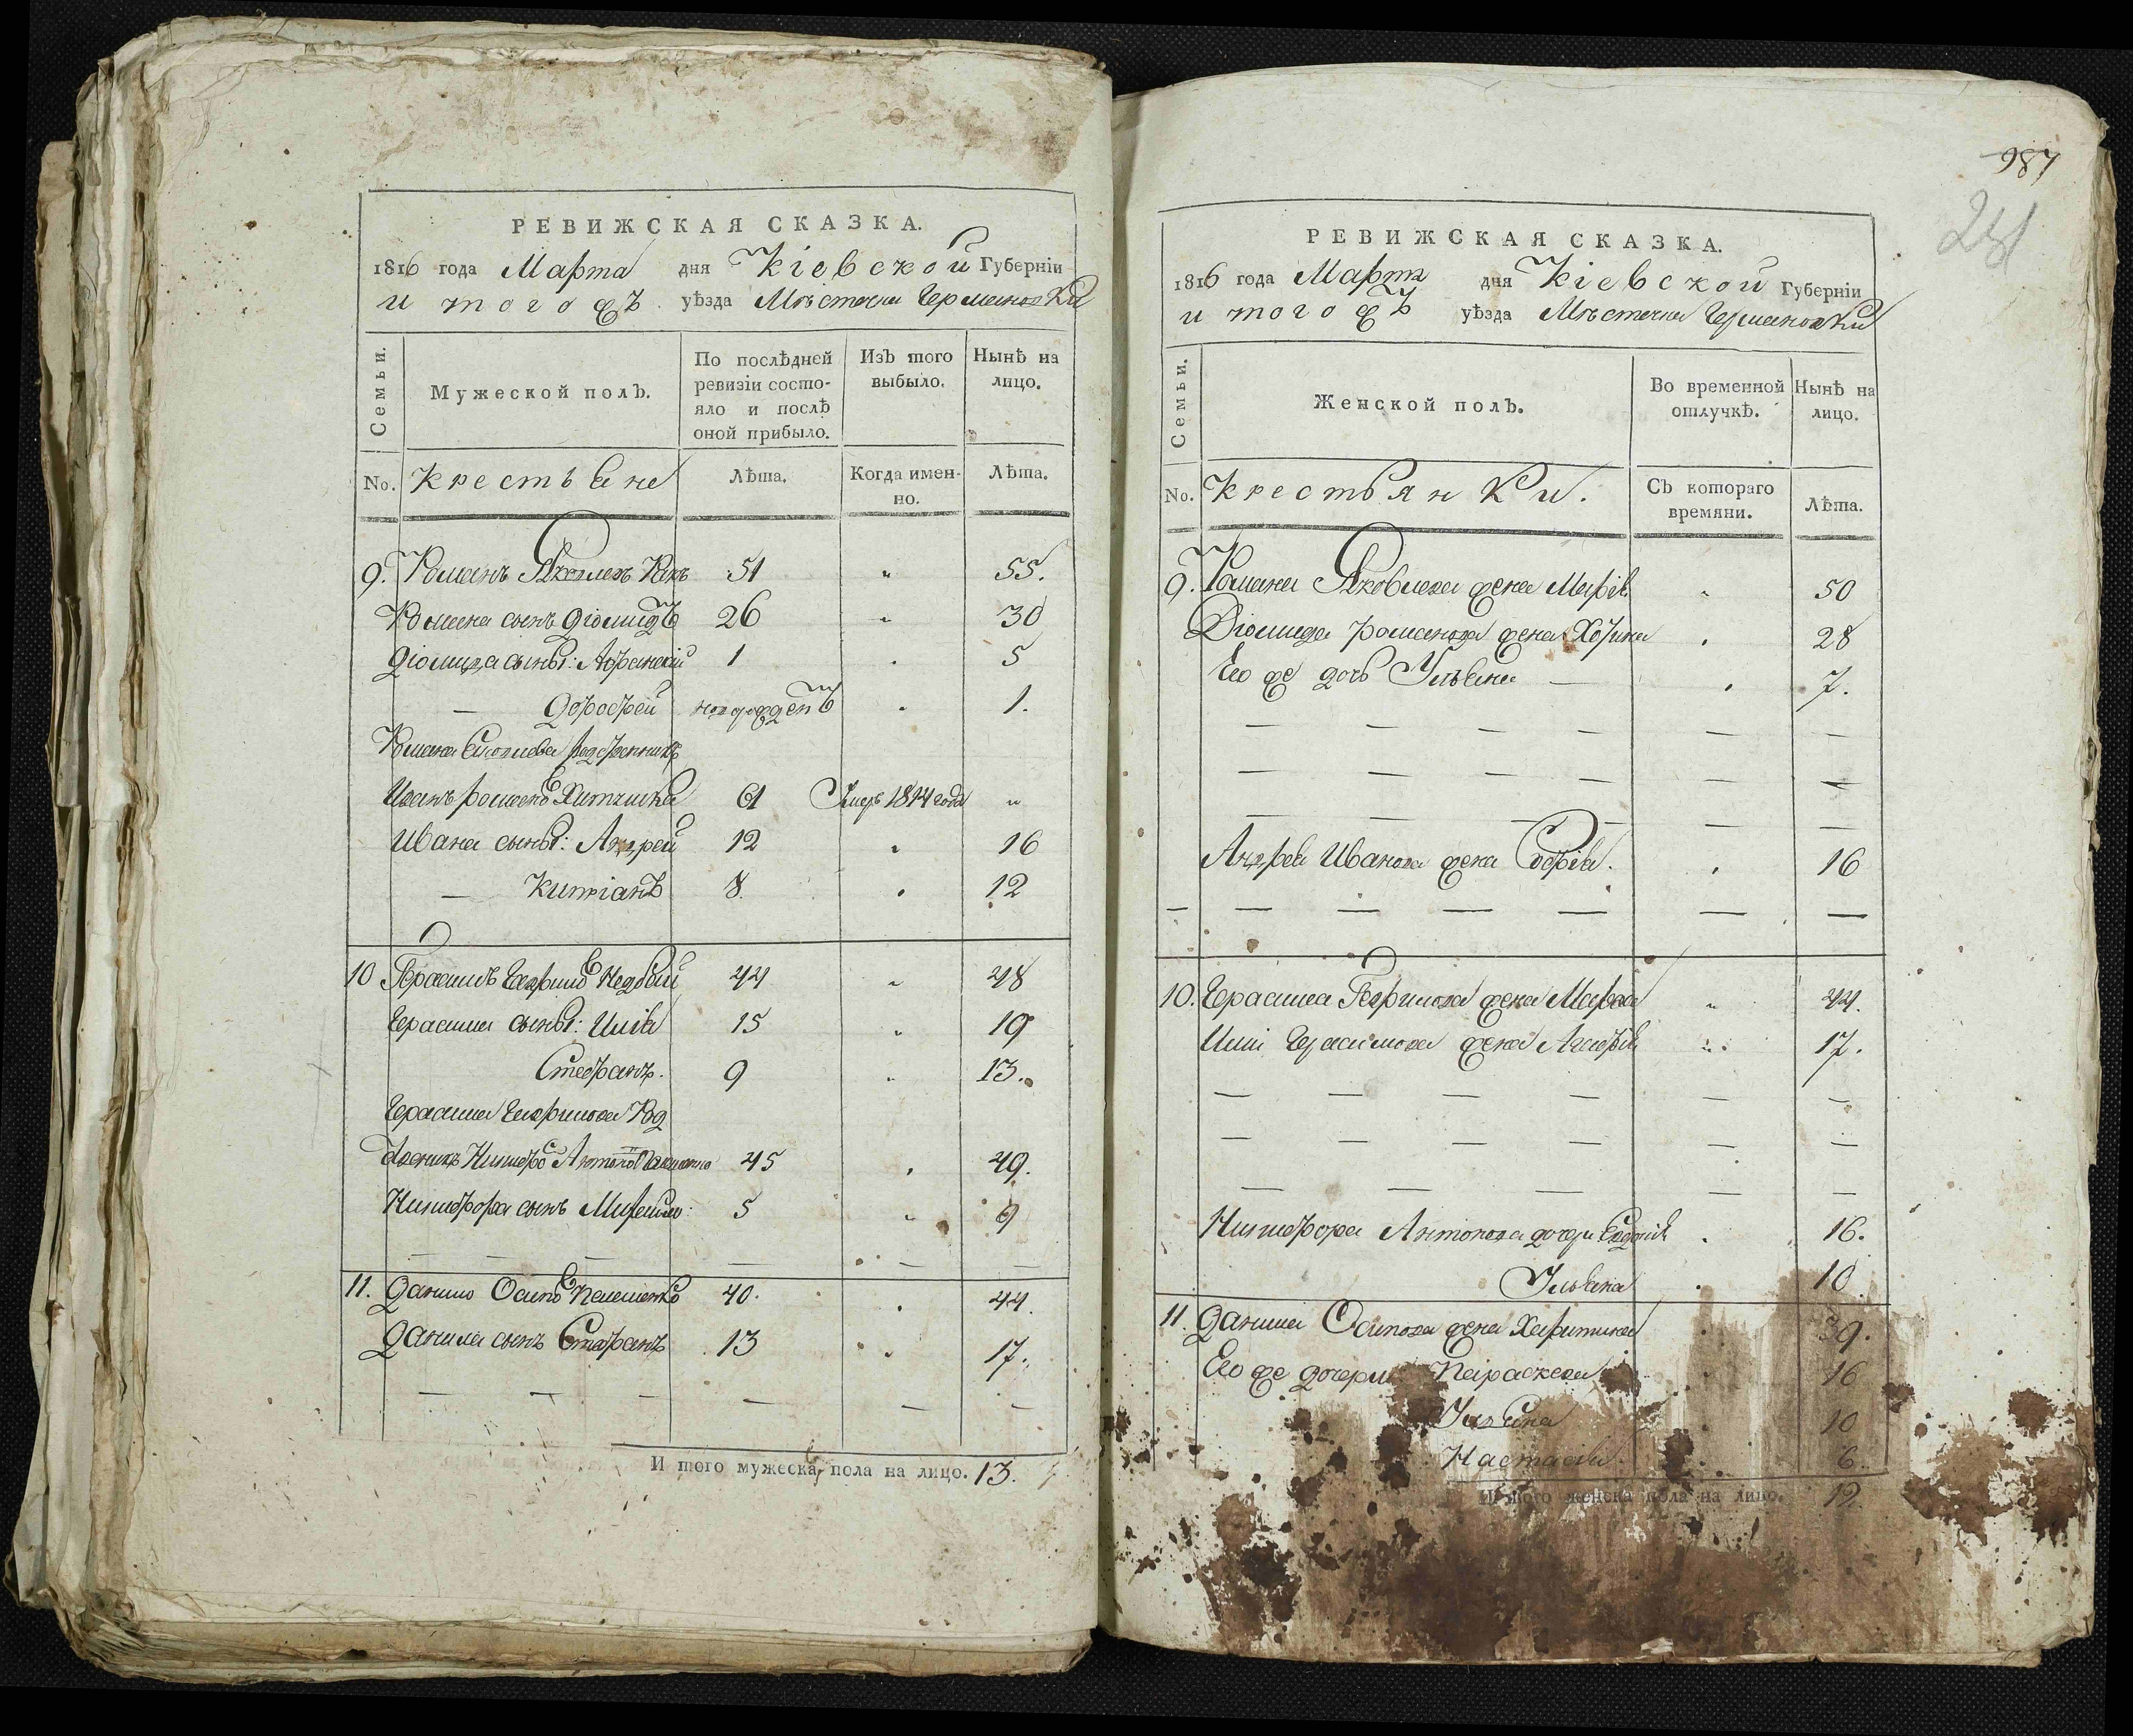 РЕВИЖСКАЯ СКАЗКА.
1816 года Марта дня Кіевской Губерніи
и тогожъ уѣзда Мѣстечка Германовки
Семьи.
Мужеской полъ.
По послѣдней ревизіи состояло и послѣ оной прибыло.
Изъ того выбыло.
Нынѣ на лицо.
No. Крестьяне
Лѣта.
Когда именно.
Лѣта.
9. Романъ Яковлевъ 51 " 55.
Романа сынъ Діомидъ 26 " 30
Діомида сыны: Афанасій 1 " 5
— Дорофей новорожденъ " 1.
Романа Яковлева
Иванъ 61 Умеръ 1814 года "
Ивана сыны: Андрей 12 " 16
— Китріанъ 8. " 12
10 Герасимъ Гавриловъ 44 " 48
Герасима сыны: Илія 15 " 19
Стефанъ. 9 " 13.
Герасима Гаврилова Род
Никифоръ Антоновъ 45 " 49.
Никифора сынъ 5 " 9
— — — — — —
11. Данило Осиповъ 40. " 44.
Данила сынъ Стефанъ 13 " 17.
— — — — — —
И того мужеска пола на лицо. 13.
987
РЕВИЖСКАЯ СКАЗКА.
1816 года Марта дня Кіевской Губерніи
и тогожъ уѣзда Мѣстечка Германовки
Семьи.
Женской полъ.
Во временной отлучкѣ.
Нынѣ на лицо.
No. Крестьянки.
Съ котораго времяни.
Лѣта.
9. Романа Яковлева жена Марія " 50
Діомида Романова жена " 28
Его же дочь Ульяна — " 7.
— — — — — —
— — — — — —
— — — — — —
Андрея Иванова жена Софія. " 16
— — — — — — —
10. Герасима Гаврилова жена Марфа " 44.
Иліи Герасимова жена Агафія " 17.
— — — — — —
— — — — — —
— — — — —
Никифора Антонова дочери Евдокія " 16.
Ульяна " 10
11. Данила Осипова жена Харитина " 39.
Его же дочери Параскева " 16
Ульяна " 10
Настасія. " 6.
И того женска пола на лицо. 12.